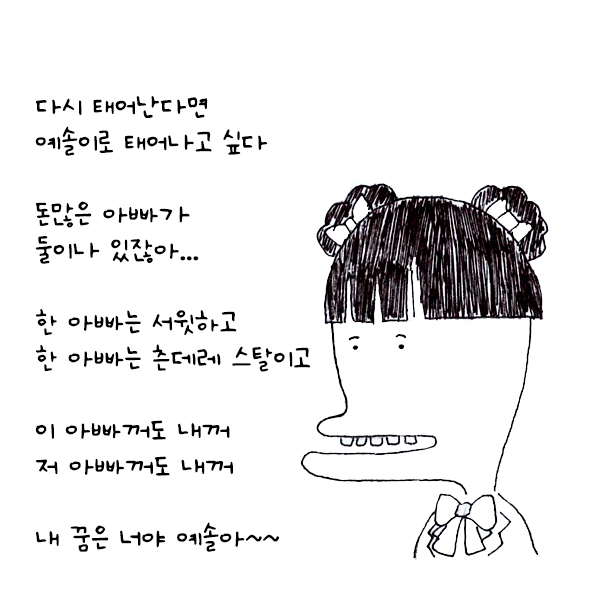 다시 태어난다면
예솔이로 태어나고 싶다
돈많은 아빠가
둘이나 있잖아...
한 아빠는 서윗하고
한 아빠는 츤데레 스탈이고
이 아빠꺼도 내꺼
저 아빠꺼도 내꺼
내 꿈은 너야 예솔아~~